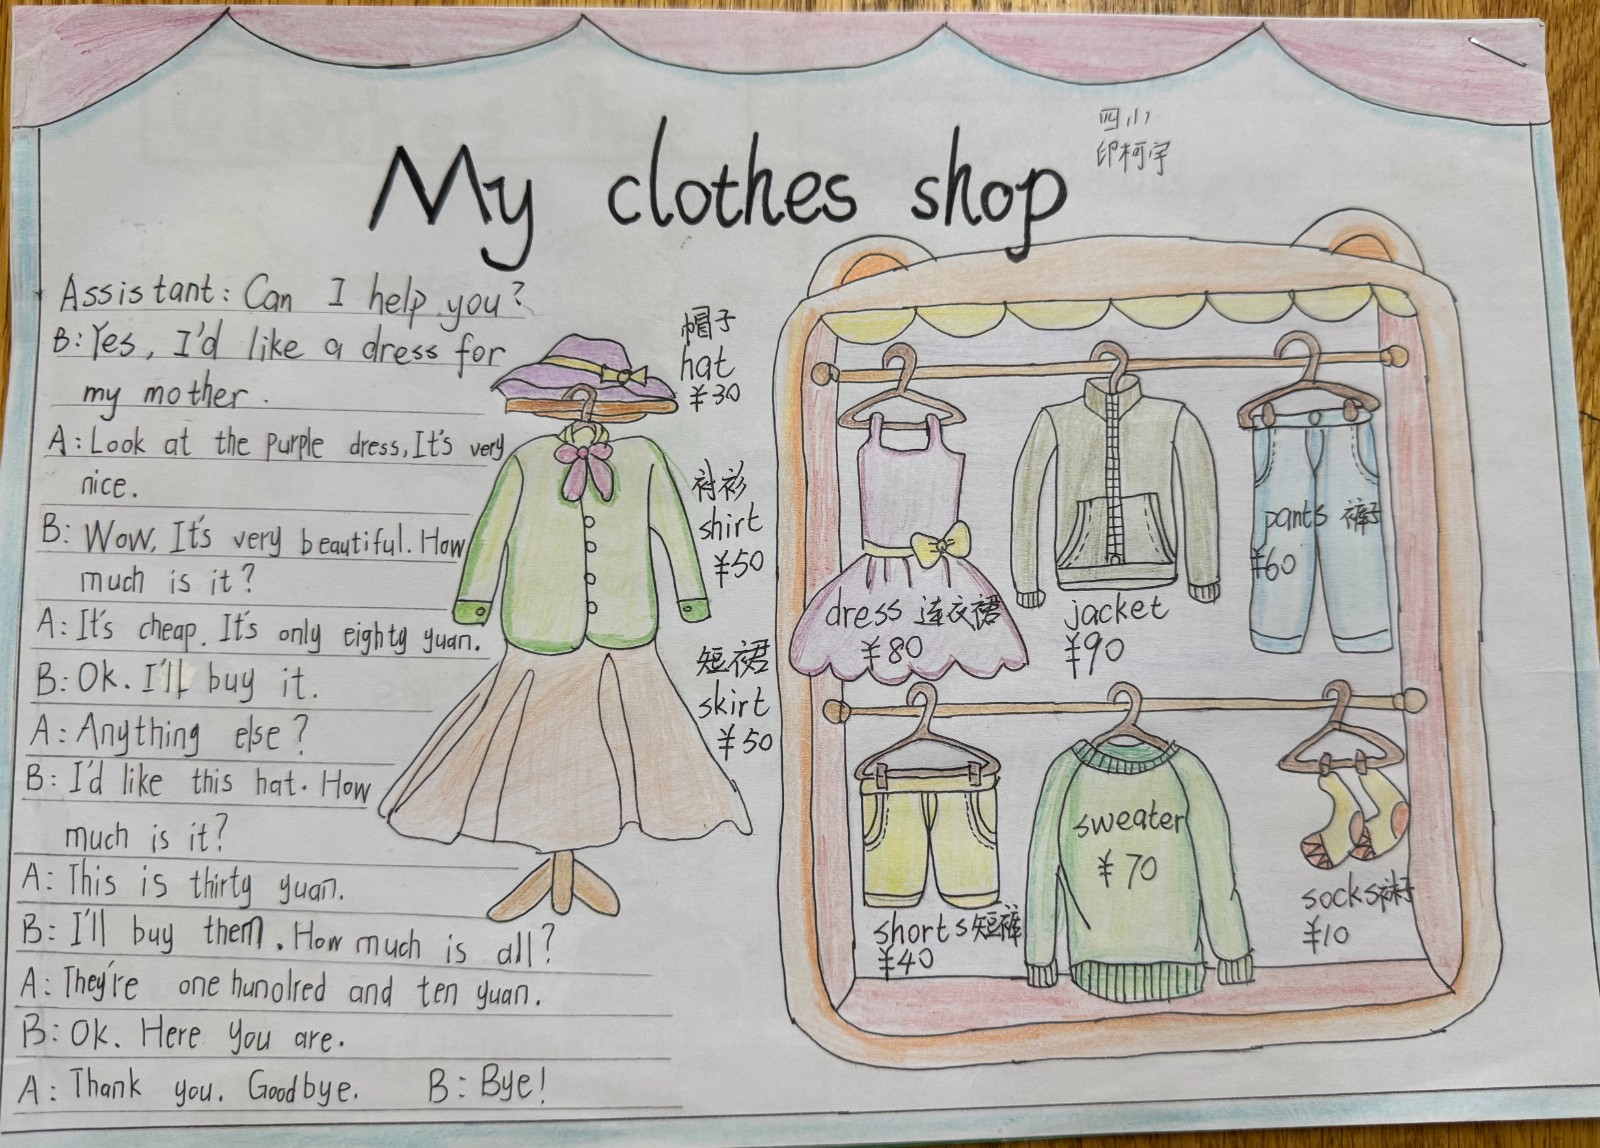 四小
印柯宇
My clothes shop
Assistant: Can I help you?
B: Yes, I'd like a dress for
my mother.
A: Look at the purple dress, It's very
nice.
B: Wow, It's very beautiful. How
much is it?
A: It's cheap. It's only eighty yuan.
B: Ok. I'll buy it.
A: Anything else?
B: I'd like this hat. How
much is it?
A: This is thirty yuan.
B: I'll buy them. How much is all?
A: They're one hundred and ten yuan.
B: Ok. Here you are.
A: Thank you. Goodbye. B: Bye!
帽子
hat
¥30
衬衫
shirt
¥50
短裙
skirt
¥50
dress 连衣裙
¥80
jacket
¥90
pants 裤子
¥60
shorts 短裤
¥40
sweater
¥70
socks 袜子
¥10